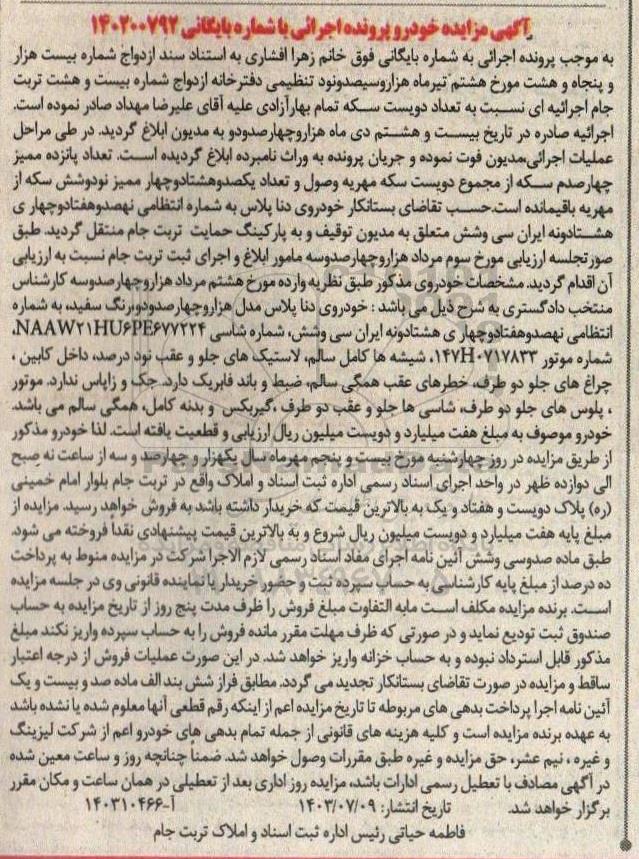 آگهی مزایده خودرو پرونده اجرائی با شماره بایگانی ۱۴۰۲۰۰۷۹۲
به موجب پرونده اجرائی به شماره بایگانی فوق خانم زهرا افشاری به استناد سند ازدواج شماره بیست هزار
و پنجاه و هشت مورخ هشتم تیرماه هزاروسیصدونود تنظیمی دفترخانه ازدواج شماره بیست و هشت تربت
جام اجرائیه ای نسبت به تعداد دویست سکه تمام بهارآزادی علیه آقای علیرضا مهداد صادر نموده است.
اجرائیه صادره در تاریخ بیست و هشتم دی ماه هزاروچهارصدودو به مدیون ابلاغ گردید. در طی مراحل
عملیات اجرائی،مدیون فوت نموده و جریان پرونده به وراث نامبرده ابلاغ گردیده است. تعداد پانزده ممیز
چهارصدم سکه از مجموع دویست سکه مهریه وصول و تعداد یکصدوهشتادوچهار ممیز نودوشش سکه از
مهریه باقیمانده است.حسب تقاضای بستانکار خودروی دنا پلاس به شماره انتظامی نهصدوهفتادوچهار ی
هشتادونه ایران سی وشش متعلق به مدیون توقیف و به پارکینگ حمایت تربت جام منتقل گردید. طبق
صورتجلسه ارزیابی مورخ سوم مرداد هزاروچهارصدوسه مامور ابلاغ و اجرای ثبت تربت جام نسبت به ارزیابی
آن اقدام گردید. مشخصات خودروی مذکور طبق نظریه وارده مورخ هشتم مرداد هزاروچهارصدوسه کارشناس
منتخب دادگستری به شرح ذیل می باشد : خودروی دنا پلاس مدل هزاروچهارصدودو،رنگ سفید، به شماره
انتظامی نهصدوهفتادوچهار ی هشتادونه ایران سی وشش، شماره شاسی NAAW۲۱HU۶PE۶۷۷۲۲۴،
شماره موتور ۱۴۷H۰۷۱۷۸۳۳، شیشه ها کامل سالم، لاستیک های جلو و عقب نود درصد، داخل کابین ،
چراغ های جلو دو طرف، خطرهای عقب همگی سالم، ضبط و باند فابریک دارد. جک و زاپاس ندارد. موتور
، پلوس های جلو دو طرف، شاسی ها جلو و عقب دو طرف ،گیربکس و بدنه کامل، همگی سالم می باشد.
خودرو موصوف به مبلغ هفت میلیارد و دویست میلیون ریال ارزیابی و قطعیت یافته است. لذا خودرو مذکور
از طریق مزایده در روز چهارشنبه مورخ بیست و پنجم مهرماه سال یکهزار و چهارصد و سه از ساعت نه صبح
الی دوازده ظهر در واحد اجرای اسناد رسمی اداره ثبت اسناد و املاک واقع در تربت جام بلوار امام خمینی
(ره) پلاک دویست و هفتاد و یک به بالاترین قیمت که خریدار داشته باشد به فروش خواهد رسید. مزایده از
مبلغ پایه هفت میلیارد و دویست میلیون ریال شروع و به بالاترین قیمت پیشنهادی نقدا فروخته می شود.
طبق ماده صدوسی وشش آئین نامه اجرای مفاد اسناد رسمی لازم الاجرا شرکت در مزایده منوط به پرداخت
ده درصد از مبلغ پایه کارشناسی به حساب سپرده ثبت و حضور خریدار یا نماینده قانونی وی در جلسه مزایده
است. برنده مزایده مکلف است مابه التفاوت مبلغ فروش را ظرف مدت پنج روز از تاریخ مزایده به حساب
صندوق ثبت تودیع نماید و در صورتی که ظرف مهلت مقرر مانده فروش را به حساب سپرده واریز نکند مبلغ
مذکور قابل استرداد نبوده و به حساب خزانه واریز خواهد شد. در این صورت عملیات فروش از درجه اعتبار
ساقط و مزایده در صورت تقاضای بستانکار تجدید می گردد. مطابق فراز شش بند الف ماده صد و بیست و یک
آئین نامه اجرا پرداخت بدهی های مربوطه تا تاریخ مزایده اعم از اینکه رقم قطعی آنها معلوم شده یا نشده باشد
به عهده برنده مزایده است و کلیه هزینه های قانونی از جمله تمام بدهی های خودرو اعم از شرکت لیزینگ
و غیره ، نیم عشر، حق مزایده و غیره طبق مقررات وصول خواهد شد. ضمناً چنانچه روز و ساعت معین شده
در آگهی مصادف با تعطیل رسمی ادارات باشد، مزایده روز اداری بعد از تعطیلی در همان ساعت و مکان مقرر
برگزار خواهد شد. تاریخ انتشار: ۱۴۰۳/۰۷/۰۹ آ-۱۴۰۳۱۰۴۶۶
فاطمه حیاتی رئیس اداره ثبت اسناد و املاک تربت جام